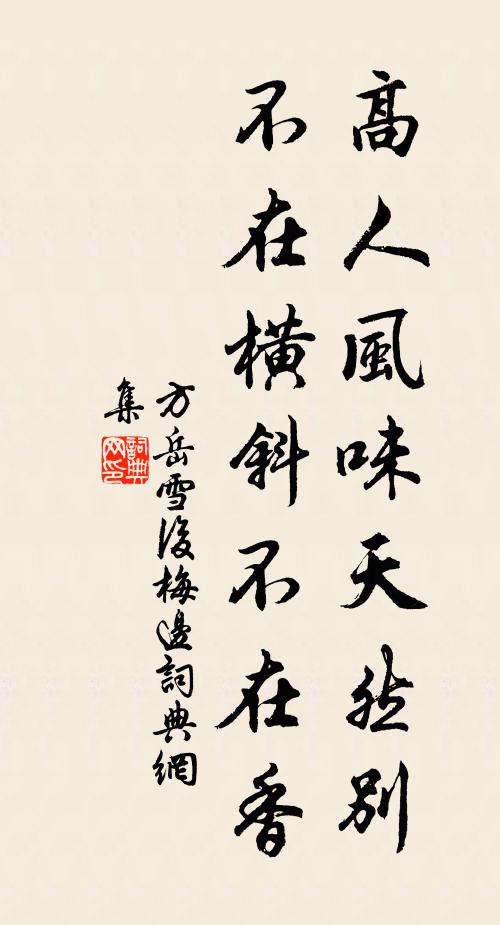 高人風味天然別
不在橫斜不在香
方岳雪後梅邊詞典網
集
詞典網印